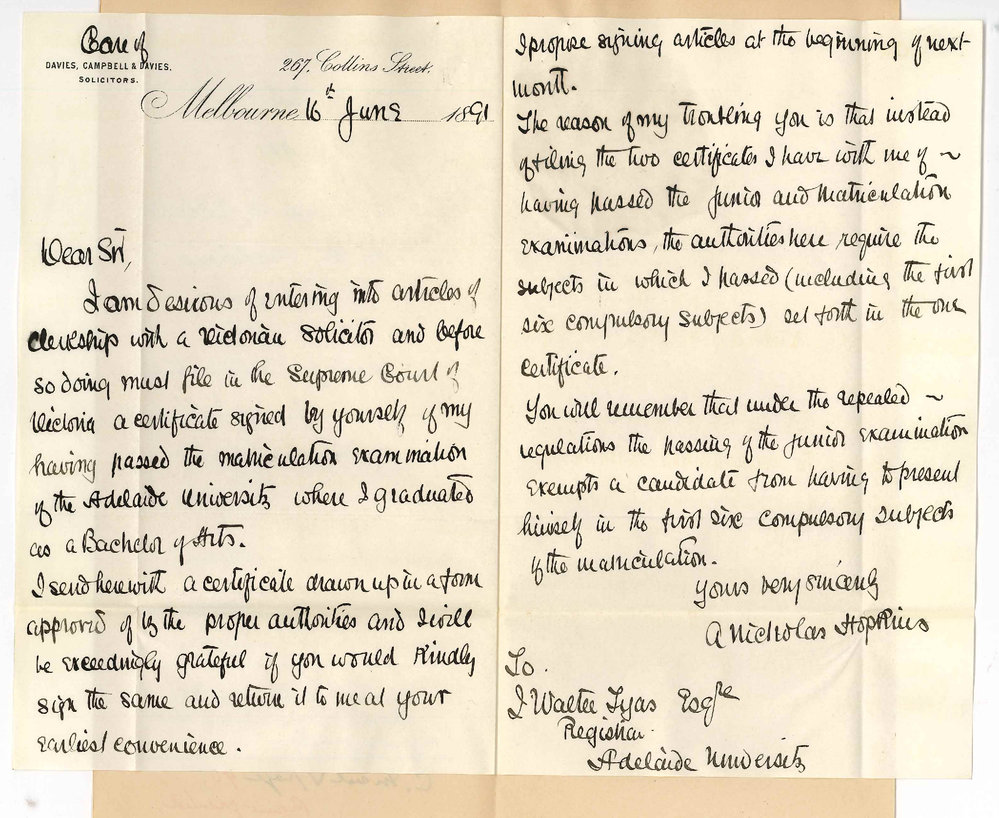 Care of
DAVIES, CAMPBELL & DAVIES.
SOLICITORS.
267, Collins Street.
Melbourne 16th June 1891
Dear Sir,
I am desirous of entering into articles of
clerkship with a Victorian Solicitor and before
so doing must file in the Supreme Court of
Victoria a certificate signed by yourself of my
having passed the matriculation examination
of the Adelaide University where I graduated
as a Bachelor of Arts.
I send herewith a certificate drawn up in a form
approved of by the proper authorities and I will
be exceedingly grateful if you would kindly
sign the same and return it to me at your
earliest convenience.
I propose signing articles at the beginning of next
month.
The reason of my troubling you is that instead
of filing the two certificates I have with me of ~
having passed the Junior and Matriculation
Examinations, the authorities here require the
subjects in which I passed (including the first
six compulsory subjects) set forth in the one
certificate.
You will remember that under the repealed ~
regulations the passing of the Junior Examination
exempts a candidate from having to present
himself in the first six compulsory subjects
of the matriculation.
Yours very sincerely
A Nicholas Hopkins
To.
J Walter Tyas Esqre
Registrar
Adelaide University